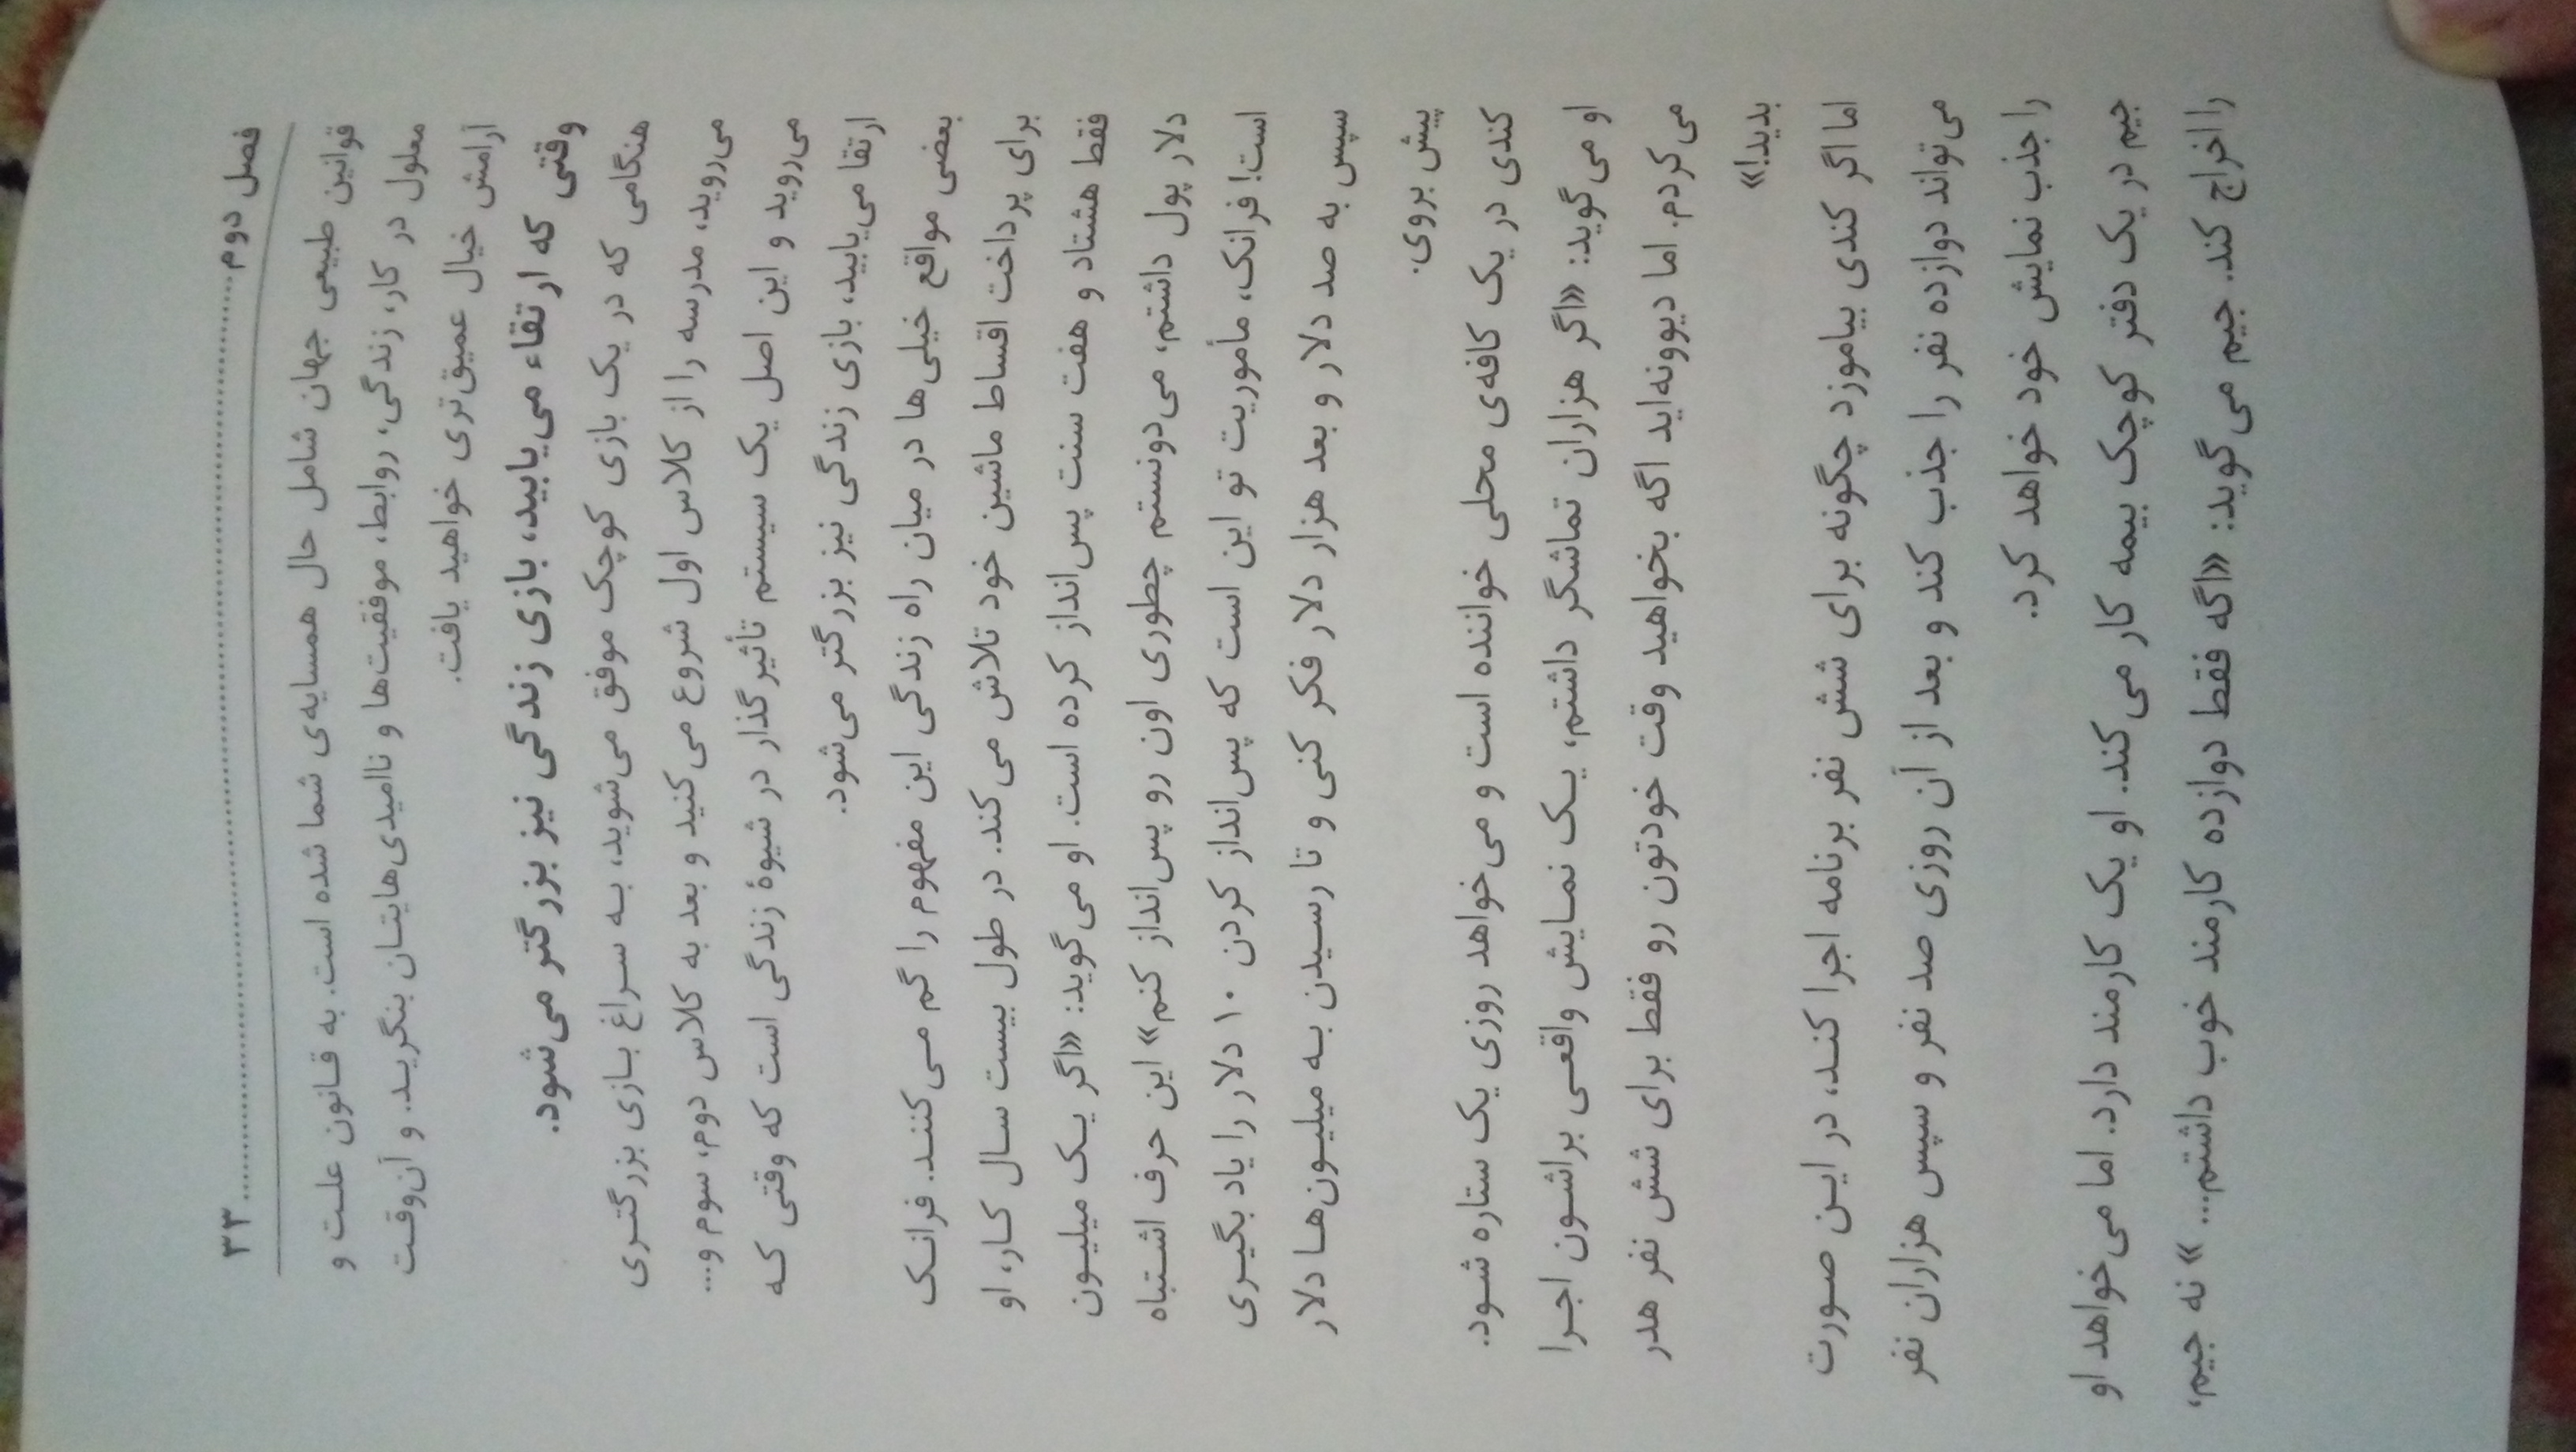 فصل دوم ........................................ ۳۳
قوانین طبیعی جهان شامل حال همسایه‌ی شما شده است. به قانون علت و
معلول در کار، زندگی، روابط، موفقیت‌ها و ناامیدی‌هایتان بنگرید. و آن‌وقت
آرامش خیال عمیق‌تری خواهید یافت.
وقتی که ارتقاء می‌یابید، بازی زندگی نیز بزرگتر می‌شود.
هنگامی که در یک بازی کوچک موفق می‌شوید، به سراغ بازی بزرگتری
می‌روید، مدرسه را از کلاس اول شروع می‌کنید و بعد به کلاس دوم، سوم و...
می‌روید و این اصل یک سیستم تأثیرگذار در شیوهٔ زندگی است که وقتی که
ارتقا می‌یابید، بازی زندگی نیز بزرگتر می‌شود.
بعضی مواقع خیلی‌ها در میان راه زندگی این مفهوم را گم می‌کنند. فرانک
برای پرداخت اقساط ماشین خود تلاش می‌کند. در طول بیست سال کار، او
فقط هشتاد و هفت سنت پس‌انداز کرده است. او می‌گوید: «اگر یک میلیون
دلار پول داشتم، می‌دونستم چطوری اون رو پس‌انداز کنم» این حرف اشتباه
است! فرانک، مأموریت تو این است که پس‌انداز کردن ۱۰ دلار را یاد بگیری
سپس به صد دلار و بعد هزار دلار فکر کنی و تا رسیدن به میلیون‌ها دلار
پیش بروی.
کندی در یک کافه‌ی محلی خواننده است و می‌خواهد روزی یک ستاره شود.
او می‌گوید: «اگر هزاران تماشگر داشتم، یک نمایش واقعی براشون اجرا
می‌کردم. اما دیوونه‌اید اگه بخواهید وقت خودتون رو فقط برای شش نفر هدر
بدید!»
اما اگر کندی بیاموزد چگونه برای شش نفر برنامه اجرا کند، در این صورت
می‌تواند دوازده نفر را جذب کند و بعد از آن روزی صد نفر و سپس هزاران نفر
را جذب نمایش خود خواهد کرد.
جیم در یک دفتر کوچک بیمه کار می‌کند. او یک کارمند دارد. اما می‌خواهد او
را اخراج کند. جیم می‌گوید: «اگه فقط دوازده کارمند خوب داشتم...» نه جیم،